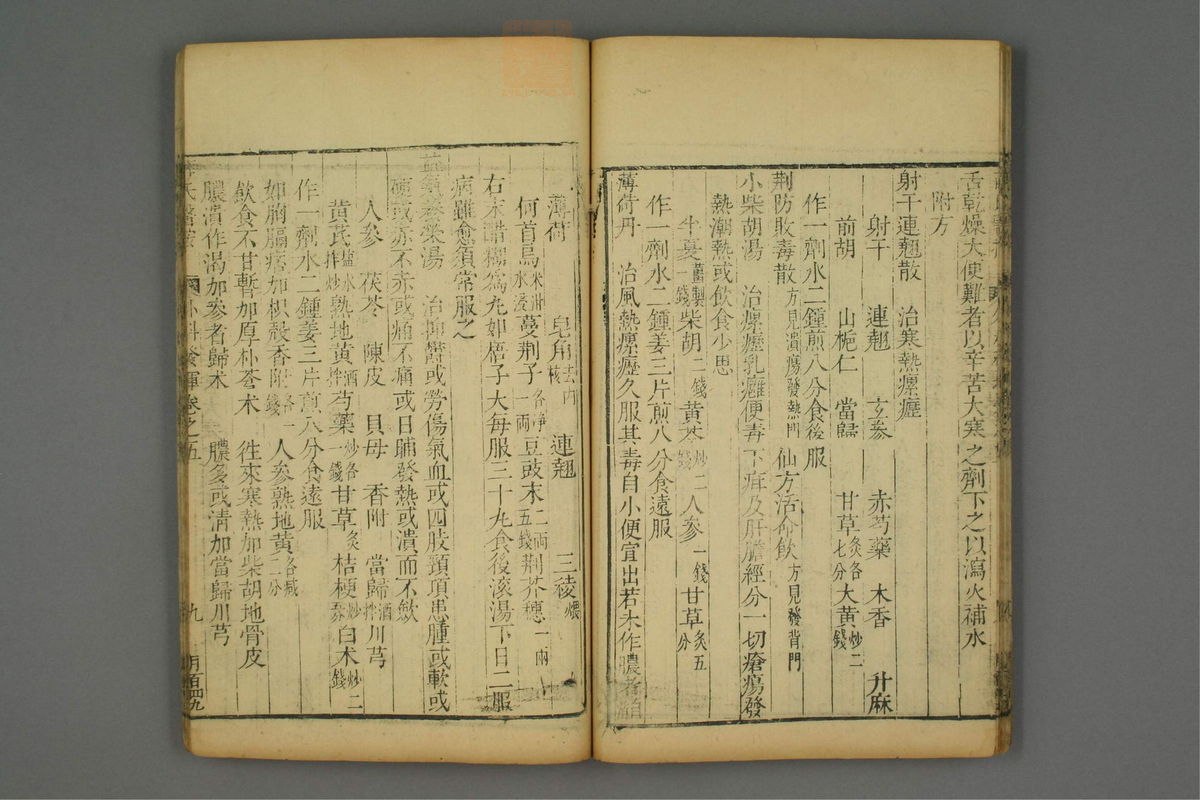 舌乾燥大便難者以辛苦大寒之劑下之以瀉火補水
附方
射干連翹散 治寒熱瘰癧
射干 連翹 玄參 赤芍藥 木香 升麻
前胡 山梔仁 當歸 甘草炙各七分 大黃炒二錢
作一劑水二鍾煎八分食後服
荆防敗毒散方見潰瘍發熱門 仙方活命飲方見發背門
小柴胡湯 治瘰癧乳癰便毒下疳及肝膽經分一切瘡瘍發
熱潮熱或飲食少思
半夏薑製一錢 柴胡二錢 黃芩炒二錢 人參一錢 甘草炙五分
作一劑水二鍾姜三片煎八分食遠服
薄荷丹 治風熱瘰癧久服其毒自小便宜出若未作膿者
薄荷 皂角去內核 連翹 三稜煨
何首烏米泔水浸 蔓荆子各淨一兩 豆豉末二兩五錢 荆芥穗一兩
右末醋糊為丸如梧子大每服三十丸食後滾湯下日二服
病雖愈須常服之
益氣養榮湯 治抑鬱或勞傷氣血或四肢頸項患腫或軟或
硬或赤不赤或痛不痛或日晡發熱或潰而不斂
人參 茯苓 陳皮 貝母 香附 當歸酒拌 川芎
黃芪鹽水拌炒 熟地黃酒拌 芍藥炒各一錢 甘草炙 桔梗炒 白术炒二錢
作一劑水二鍾姜三片煎八分食遠服
如胸膈痞加枳殼香附各一錢 人參熟地黃各減二分
飲食不甘暫加厚朴蒼术 徃來寒熱加柴胡地骨皮
膿潰作渴加參者歸术 膿多或清加當歸川芎
氏醫案 外科發揮卷之五 九 月百四九